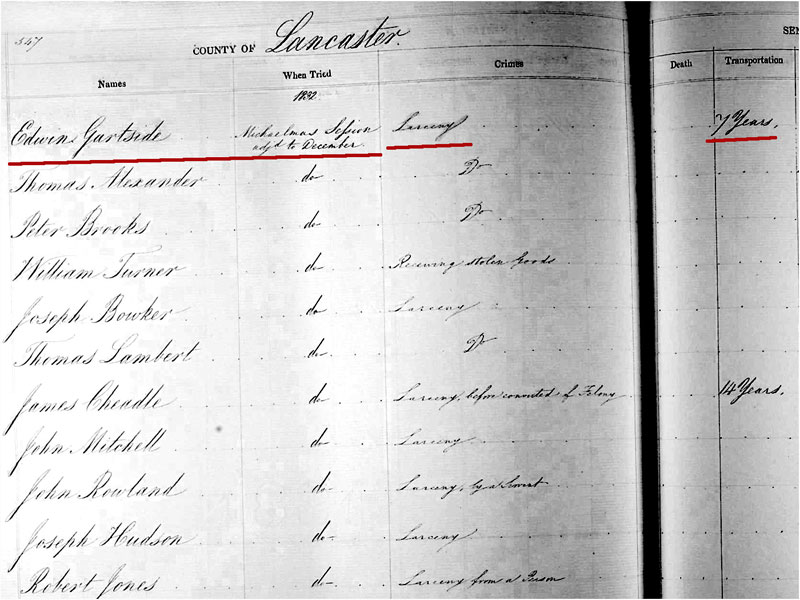 347
COUNTY OF Lancaster.
SEN
Names When Tried Crimes Death Transportation
1832
Edwin Gartside Michaelmas Session adjd to December Larceny 7 Years.
Thomas Alexander do Do
Peter Brooks do Do
William Turner do Receiving stolen Goods
Joseph Bowker do Larceny
Thomas Lambert do Do
James Cheadle do Larceny, before convicted of Felony 14 Years.
John Mitchell do Larceny
John Rowland do Larceny, by a Servt
Joseph Hudson do Larceny
Robert Jones do Larceny from a Person